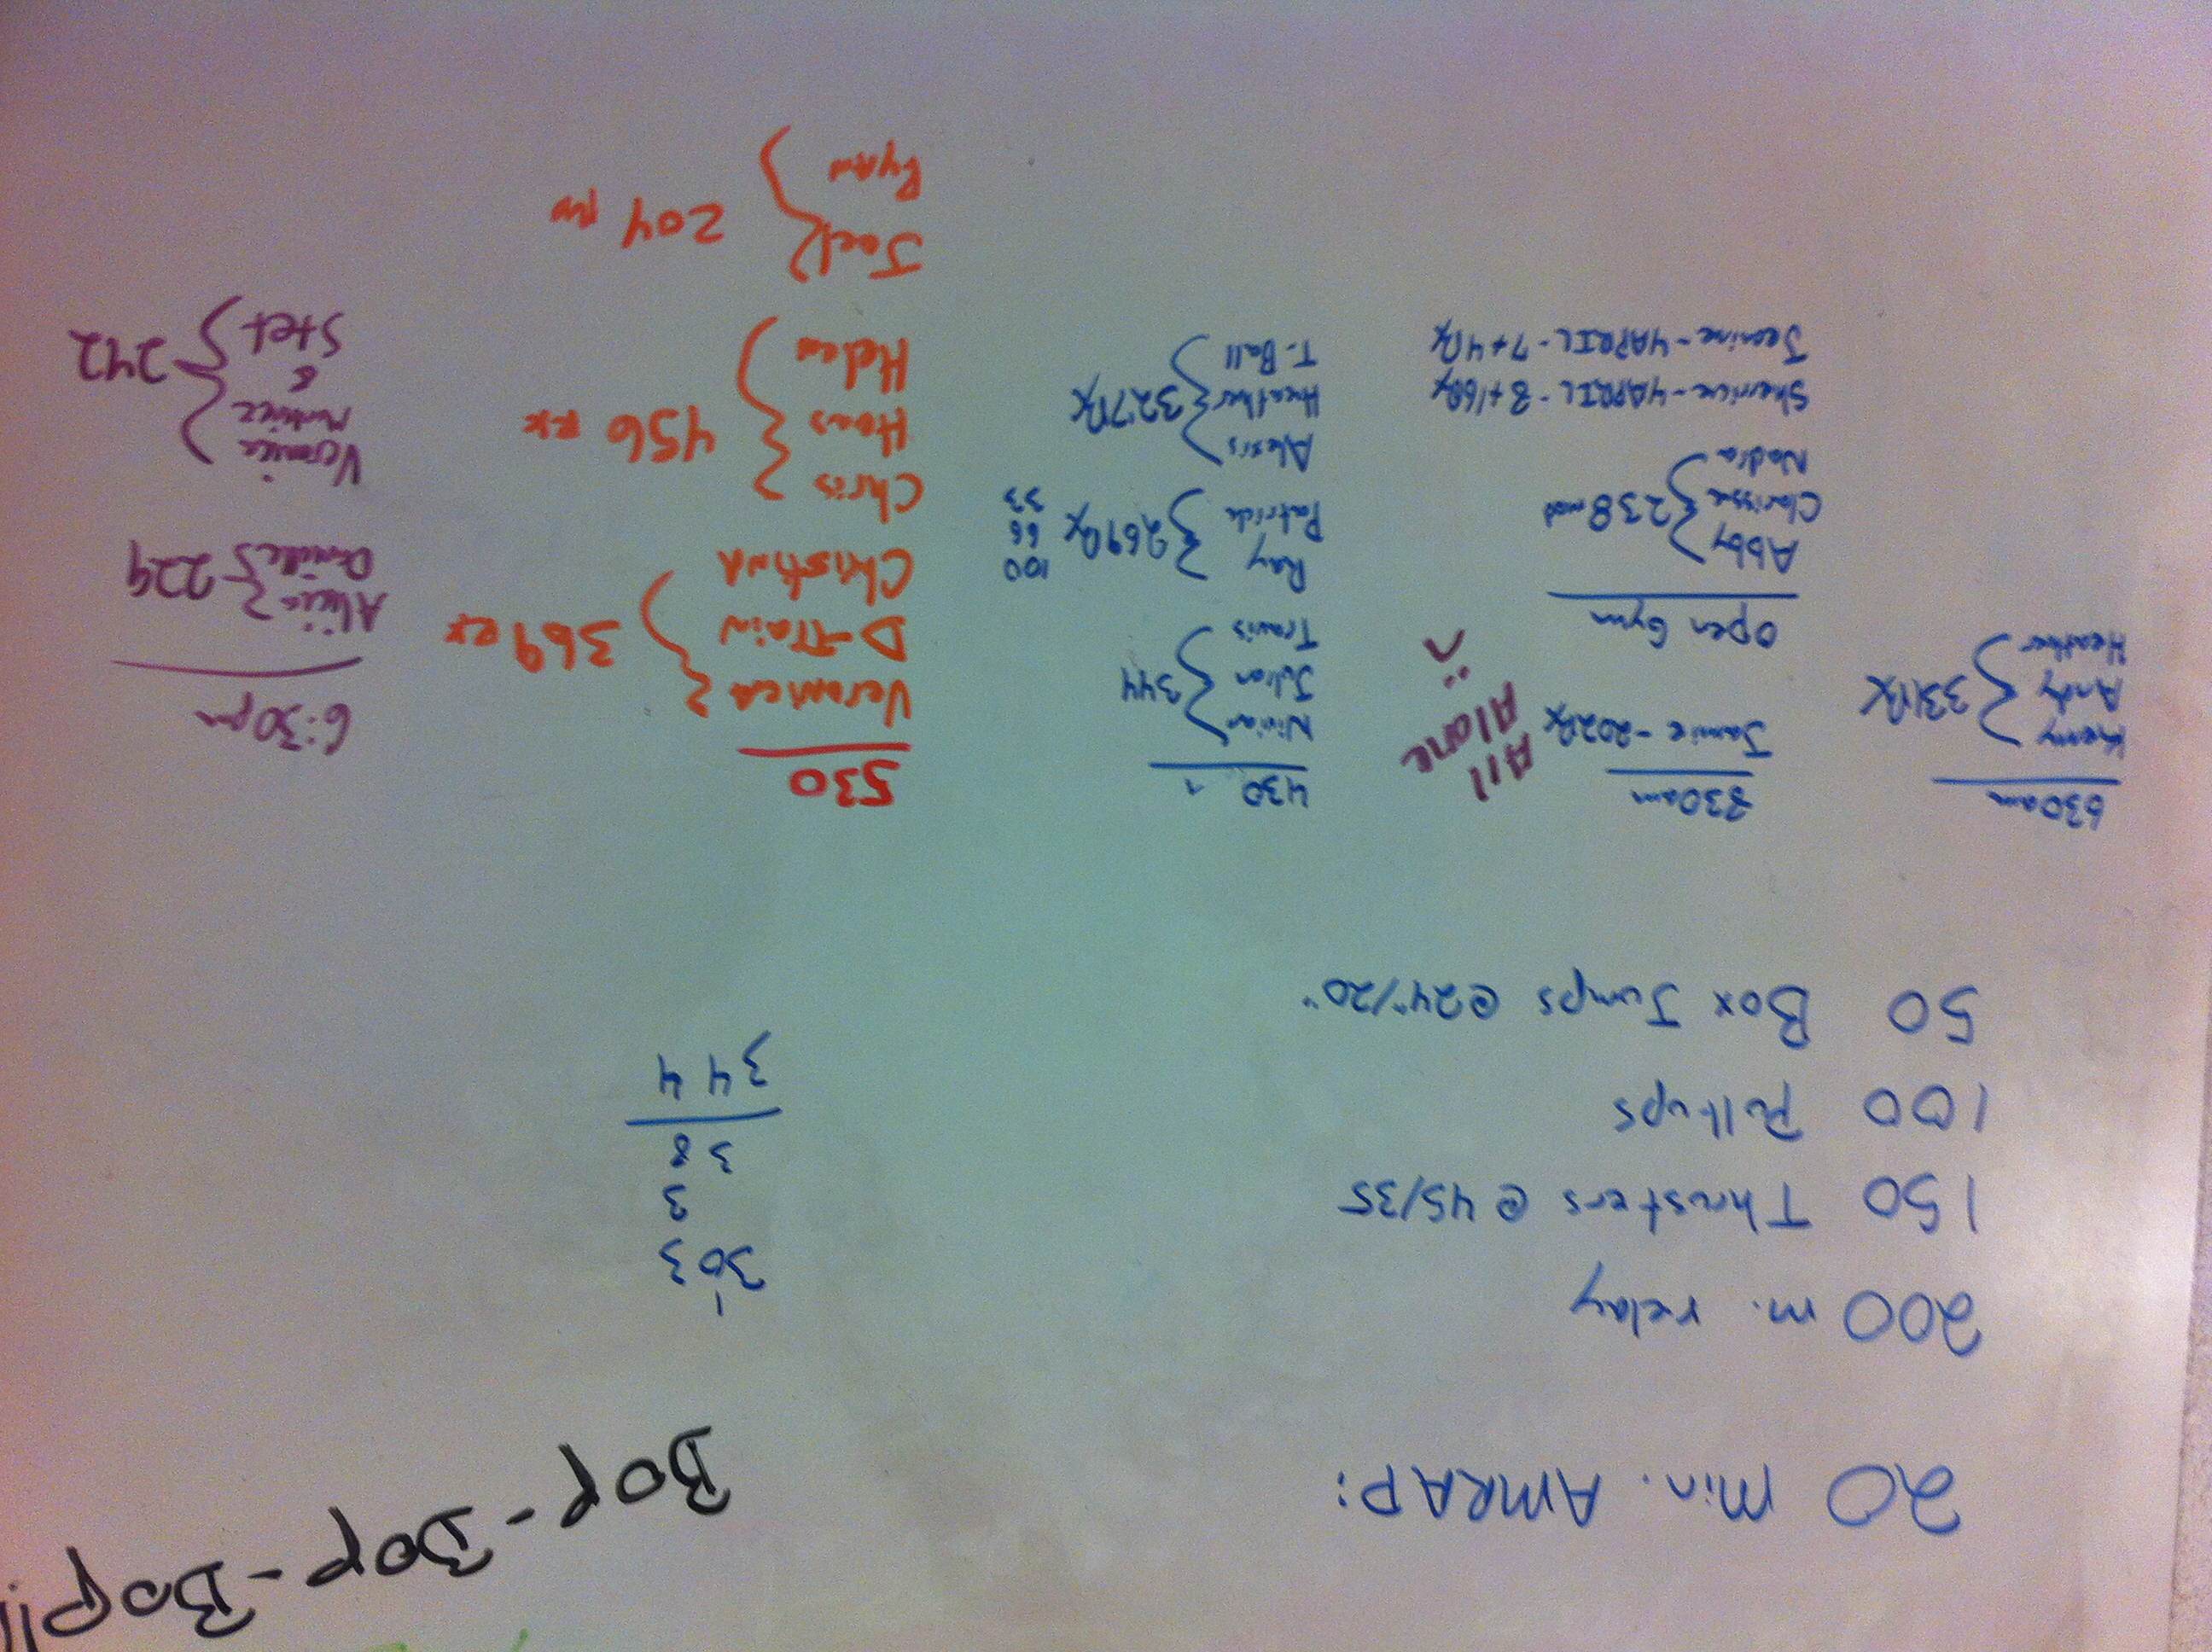 20 Min. AMRAP:
Bop-Bop-Bop!!
200 m. relay
150 Thrusters @ 45/35
100 Pull-ups
50 Box Jumps @24"/20"
1
303
3
38
344
630am
Kerry
Andy } 331Rx
Heather
830am
Jamie - 202Rx
All
Alone
Open Gym
Abby
Clarissa } 238 mod
Nadia
Sherrice - 4APRIL - 8+16Rx
Jeanine - 4APRIL - 7+4Rx
430
Julian } 344
Travis
Ray } 269Rx
Patrick
100
66
33
Alexis
Heather } 327Rx
T-Ball
530
Veronica
D-Train } 369 rx
Christina
Chris
Hans } 456 rx
Helen
Joel } 204
Ryan
6:30pm
Alicia } 229
& } 242
Stef